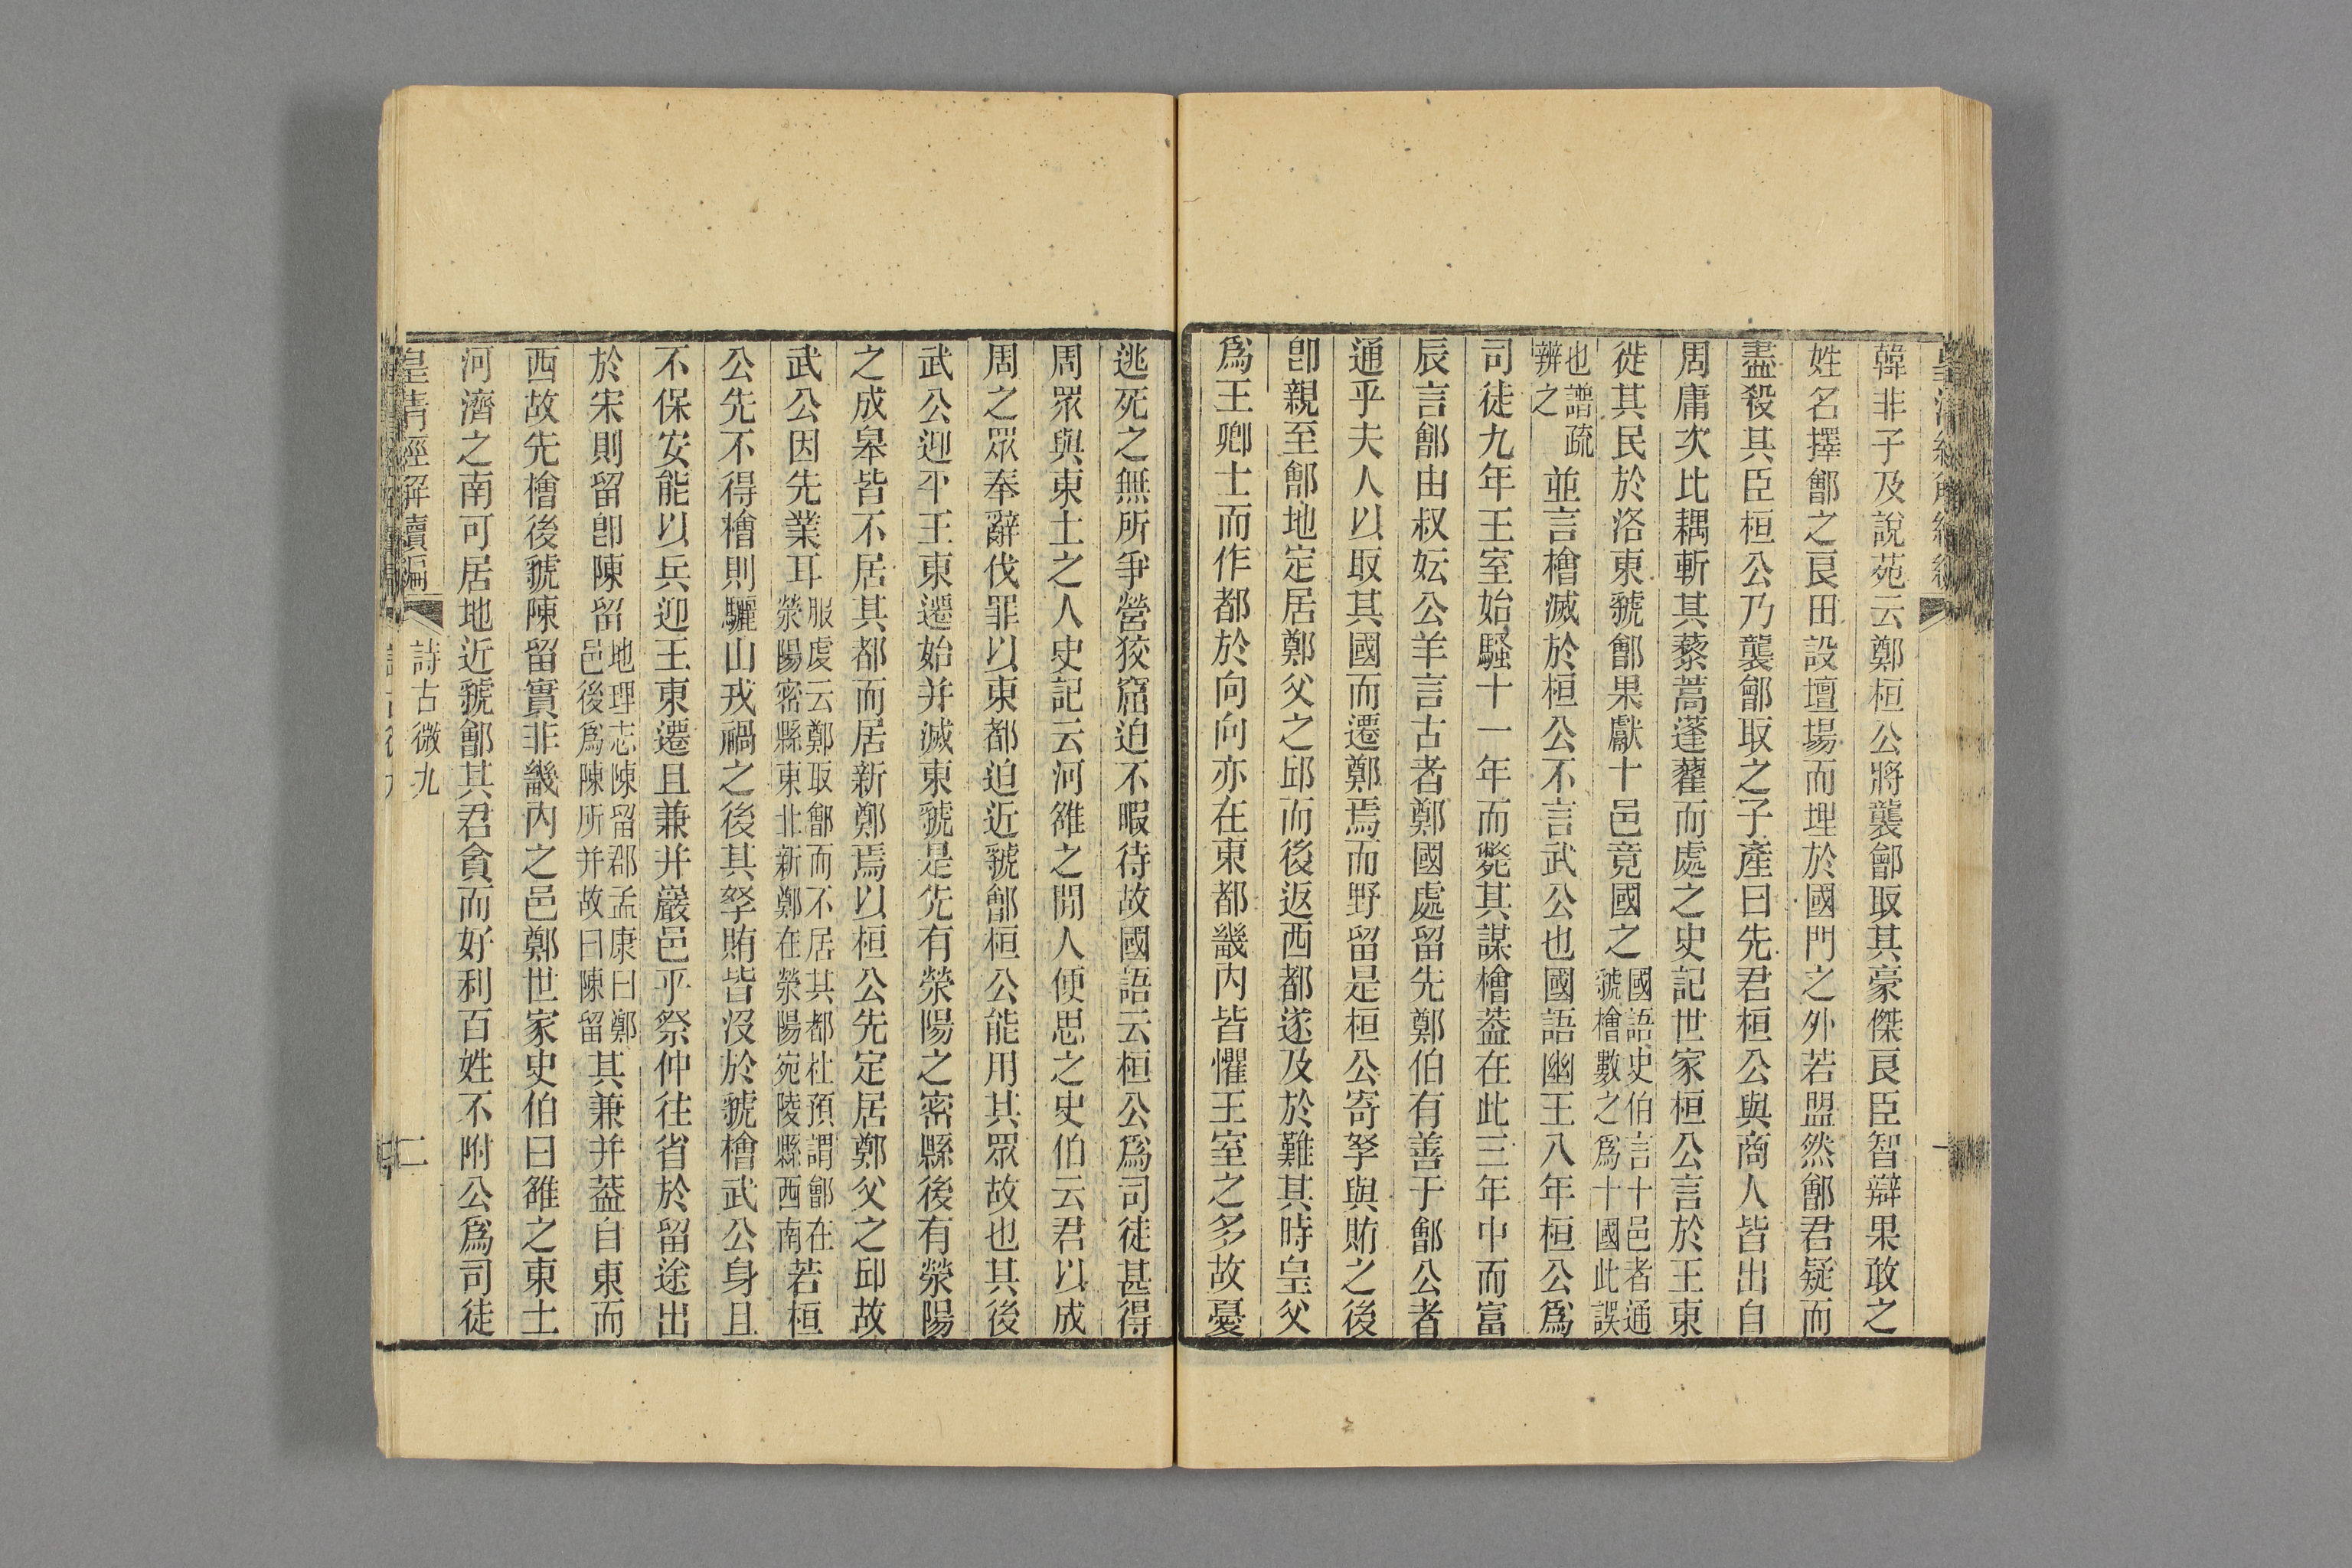 韓非子及說苑云鄭桓公將襲鄶取其豪傑良臣智辯果敢之
姓名擇鄶之良田設壇場而埋於國門之外若盟然鄶君疑而
盡殺其臣桓公乃襲鄶取之子產曰先君桓公與商人皆出自
周庸次比耦斬其藜蒿蓬藋而處之史記世家桓公言於王東
徙其民於洛東虢鄶果獻十邑竟國之國語史伯言十邑者通虢檜數之爲十國此誤
也譜疏辨之並言檜滅於桓公不言武公也國語幽王八年桓公爲
司徒九年王室始騷十一年而斃其謀檜葢在此三年中而富
辰言鄶由叔妘公羊言古者鄭國處留先鄭伯有善于鄶公者
通乎夫人以取其國而遷鄭焉而野留是桓公寄孥與賄之後
卽親至鄶地定居鄭父之邱而後返西都遂及於難其時皇父
爲王卿士而作都於向向亦在東都畿内皆懼王室之多故憂
逃死之無所爭營狡窟迫不暇待故國語云桓公爲司徒甚得
周眾與東土之人史記云河雒之閒人便思之史伯云君以成
周之眾奉辭伐罪以東都迫近虢鄶桓公能用其眾故也其後
武公迎平王東遷始并滅東虢是先有滎陽之密縣後有滎陽
之成皋皆不居其都而居新鄭焉以桓公先定居鄭父之邱故
武公因先業耳服虔云鄭取鄶而不居其都杜預謂鄶在滎陽密縣東北新鄭在滎陽宛陵縣西南若桓
公先不得檜則驪山戎禍之後其孥賄皆沒於虢檜武公身且
不保安能以兵迎王東遷且兼并巖邑乎祭仲往省於留途出
於宋則留卽陳留地理志陳留郡孟康曰鄭邑後爲陳所并故曰陳留其兼并葢自東而
西故先檜後虢陳留實非畿内之邑鄭世家史伯曰雒之東土
河濟之南可居地近虢鄶其君貪而好利百姓不附公爲司徒
皇清經解續編
詩古微九
二